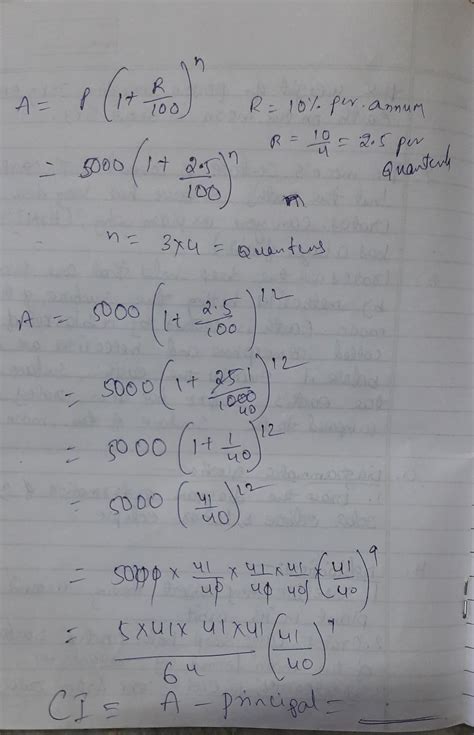 A = P (1 + R/100)^n R = 10% per annum
R = 10/4 = 2.5 per
= 5000 (1 + 2.5/100)^n Quarterly
n = 3×4 = Quarters
A = 5000 (1 + 2.5/100)^12
= 5000 (1 + 25 1/1000 40)^12
= 5000 (1 + 1/40)^12
= 5000 (41/40)^12
= 5000 × 41/40 × 41/40 × 41/40 × (41/40)^9
= 5×41× 41×41/64 (41/40)^9
CI = A - principal =